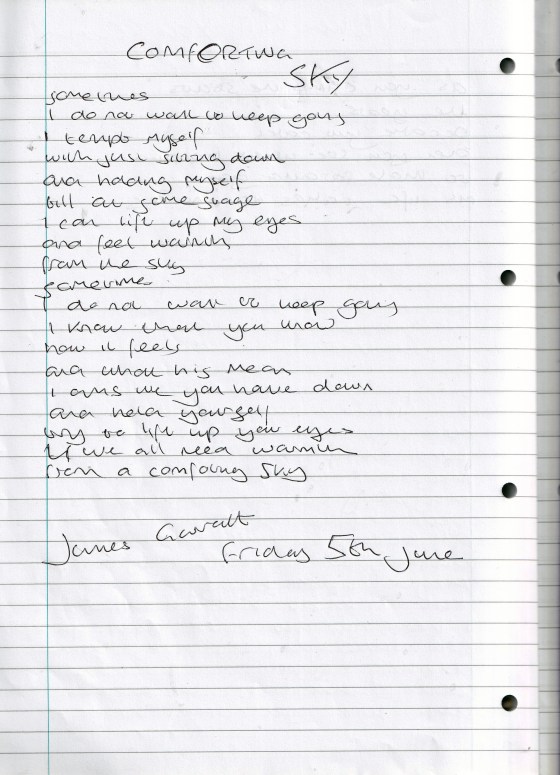 COMFORTING
SKY
sometimes
I do not want to keep going
I tempt myself
with just sitting down
and holding myself
till at some stage
I can lift up my eyes
and feel warmth
from the sky
sometimes
I do not want to keep going
I know that you know
how it feels
and what this mean
I ask we you have down
and hold yourself
try to lift up your eyes
If we all need warmth
from a comforting sky
James
Friday 5th June